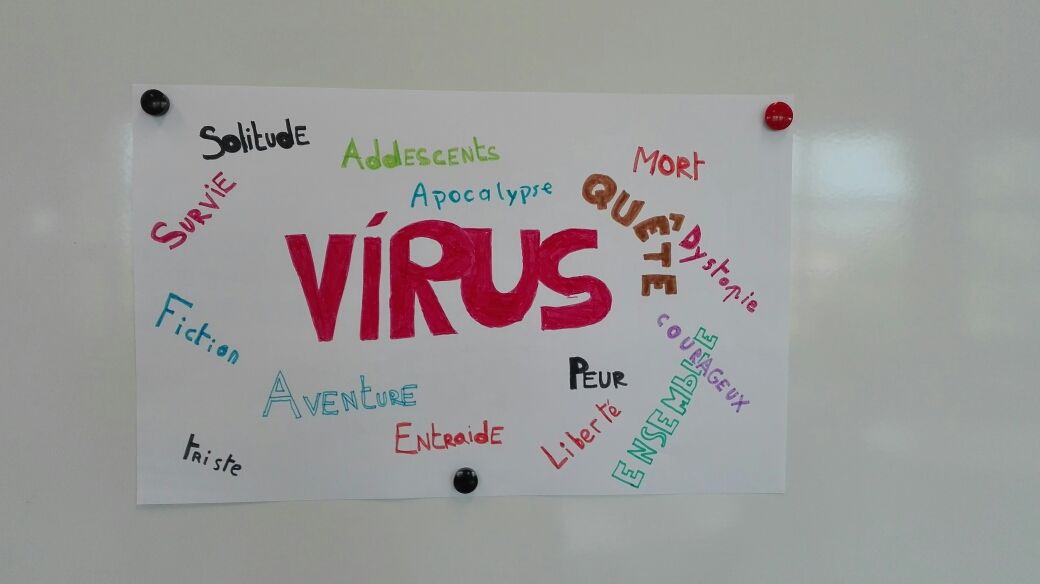 SOLITUDE
ADDLESCENTS
MORT
SURVIE
Apocalypse
QUÊTE
VÍRUS
Dystopie
Fiction
COURAGEUX
PEUR
AVENTURE
ENSEMBLE
ENTRAIDE
Liberté
TRiste